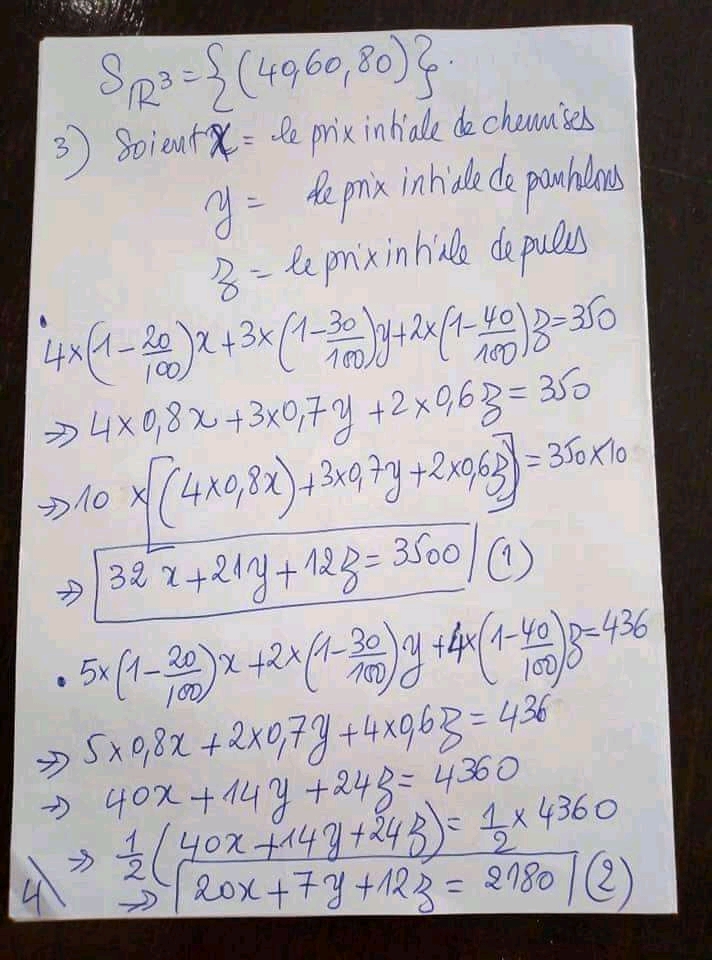 S_ℝ³ = {(40,60,80)}.
3) Soient x = le prix intiale de chemises
y = le prix intiale de pantalons
z = le prix intiale de pules
• 4×(1-20/100)x+3×(1-30/100)y+2×(1-40/100)z=350
=> 4×0,8x+3×0,7y+2×0,6z=350
=> 10×[(4×0,8x)+3×0,7y+2×0,6z]=350×10
=> 32x+21y+12z=3500 (1)
• 5×(1-20/100)x+2×(1-30/100)y+4×(1-40/100)z=436
=> 5×0,8x+2×0,7y+4×0,6z=436
=> 40x+14y+24z=4360
=> 1/2(40x+14y+24z)=1/2×4360
4 => 20x+7y+12z=2180 (2)